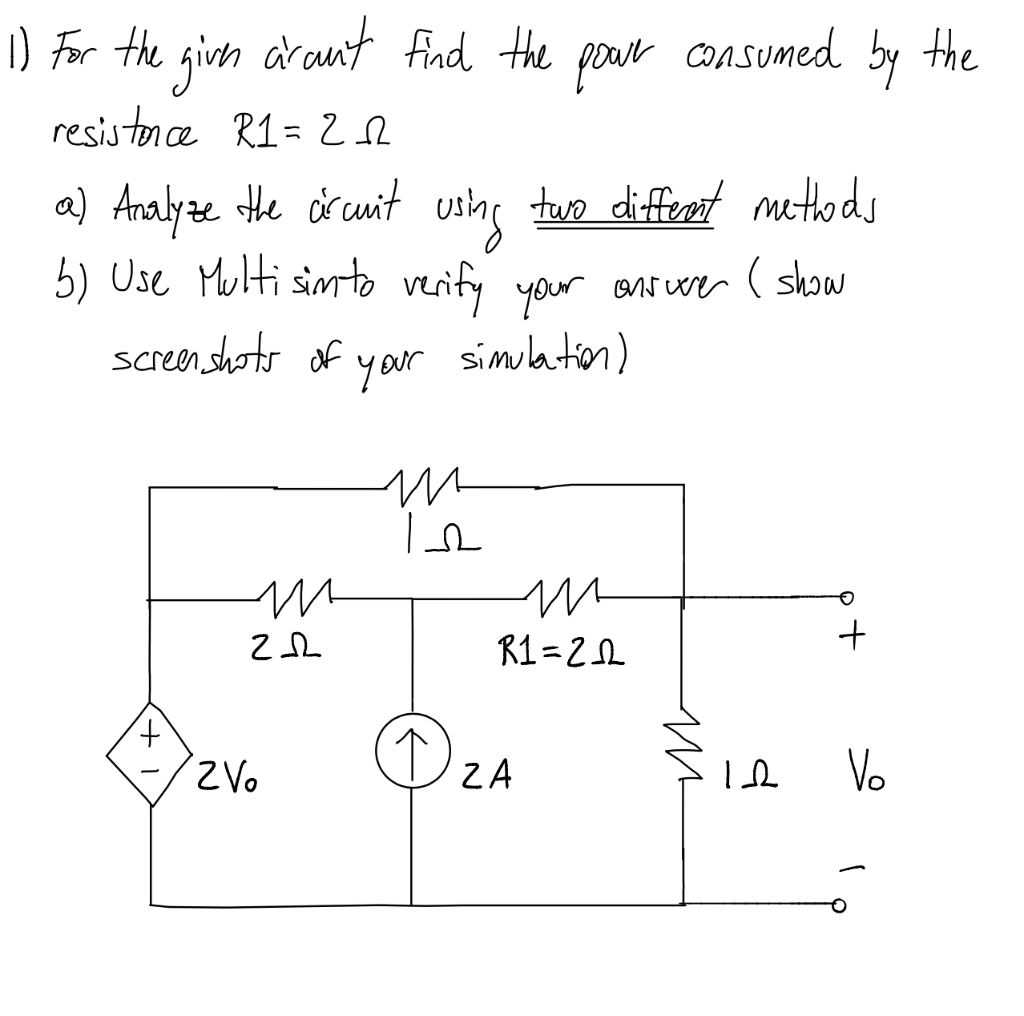 1) For the given circuit find the power consumed by the
resistance R1 = 2 Ω
a) Analyze the circuit using two different methods
b) Use Multisim to verify your answer (show
screenshots of your simulation)
1Ω
2Ω
R1=2Ω
+
+
-
2V₀
2A
1Ω
V₀
-